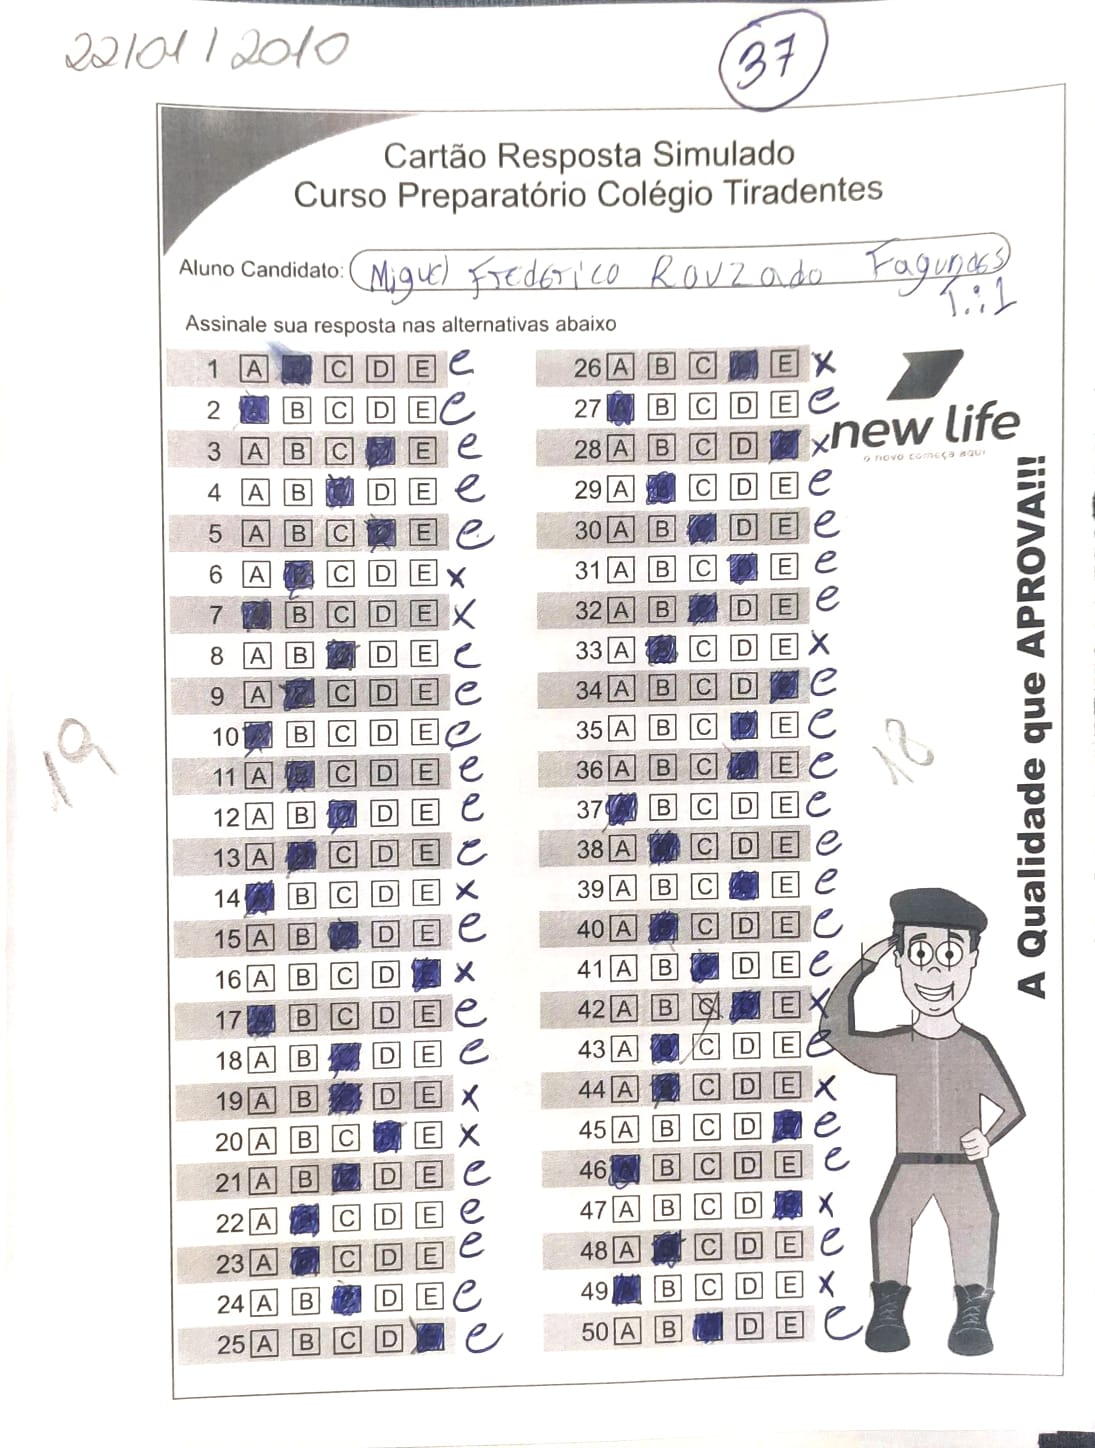 22/01/2010
37
Cartão Resposta Simulado
Curso Preparatório Colégio Tiradentes
Aluno Candidato: Miguel Frederico Rouzado Fagundes
T.:1
Assinale sua resposta nas alternativas abaixo
1 A C D E e
2 B C D E e
3 A B C E e
4 A B D E e
5 A B C E e
6 A C D E x
7 B C D E x
8 A B D E e
9 A C D E e
10 B C D E e
11 A C D E e
12 A B D E e
13 A C D E e
14 B C D E x
15 A B D E e
16 A B C D x
17 B C D E e
18 A B D E e
19 A B D E x
20 A B C E x
21 A B D E e
22 A C D E e
23 A C D E e
24 A B D E e
25 A B C D e
19
26 A B C E x
27 B C D E e
28 A B C D x
29 A C D E e
30 A B D E e
31 A B C E e
32 A B D E e
33 A C D E x
34 A B C D e
35 A B C E e
36 A B C E e
37 B C D E e
38 A C D E e
39 A B C E e
40 A C D E e
41 A B D E e
42 A B C E x
43 A C D E e
44 A C D E x
45 A B C D e
46 B C D E e
47 A B C D x
48 A C D E e
49 B C D E x
50 A B D E e
18
new life
o novo começa aqui
A Qualidade que APROVA!!!